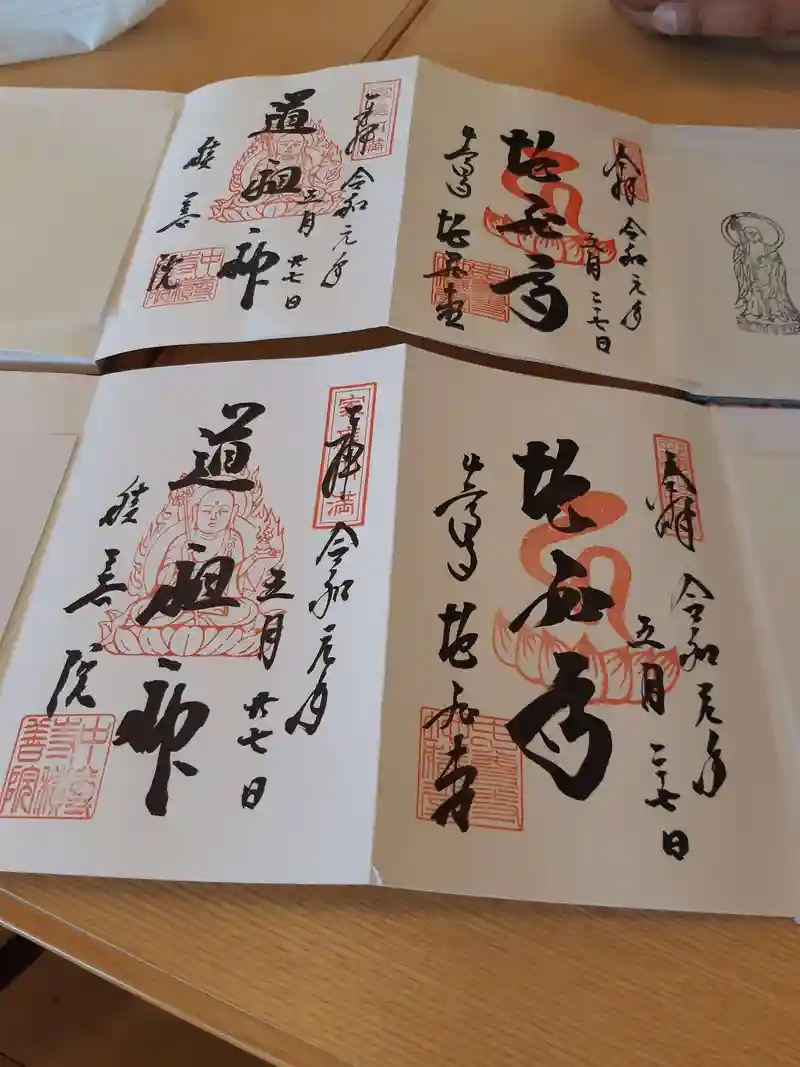 奉拝
令和元年
五月二十七日
地蔵尊
中尊寺
地蔵堂
奉拝
令和元年
五月廿七日
道祖神
積善院
奉拝
令和元年
五月二十七日
地蔵尊
中尊寺
地蔵堂
奉拝
令和元年
五月廿七日
道祖神
積善院
中尊寺積善院